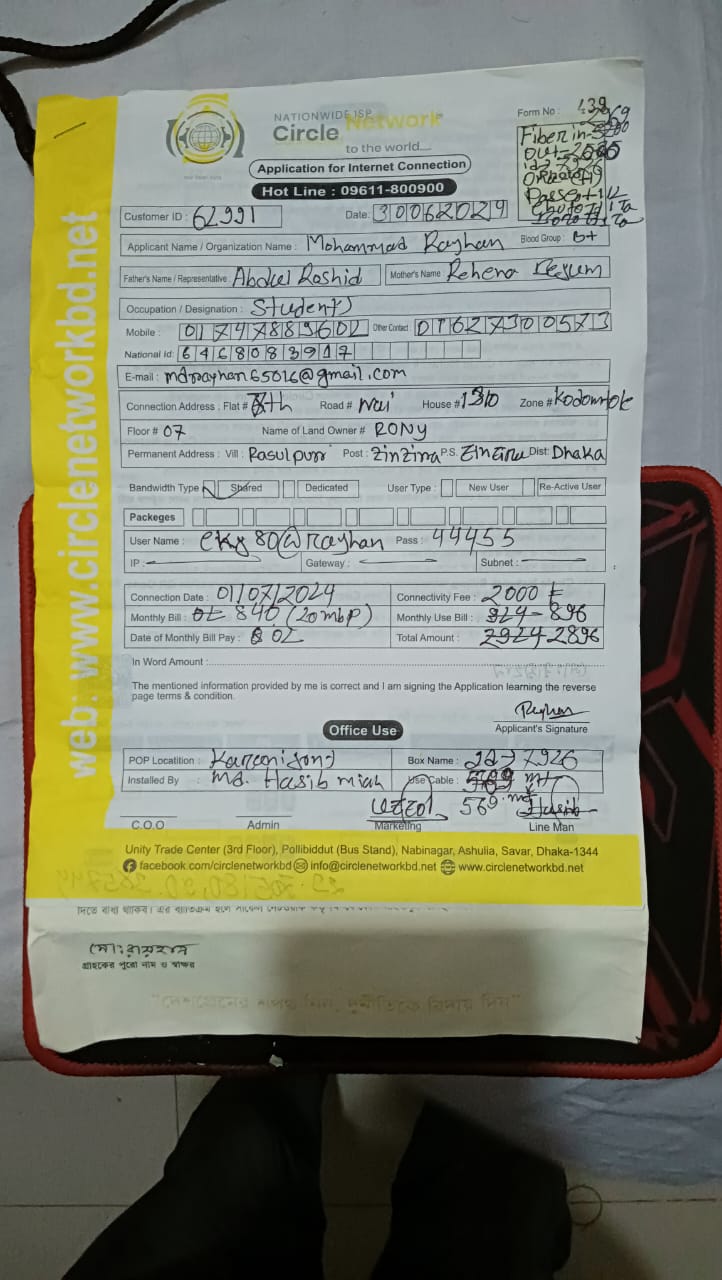 NATIONWIDE ISP
Circle Network
to the world....
Application for Internet Connection
Hot Line : 09611-800900
Form No :
Fiber in-
Out-
Customer ID : 62991
Date: 30062024
Applicant Name / Organization Name : Mohammad Rayhan Blood Group : B+
Father's Name / Representative Abdul Roshid Mother's Name Rehena Begum
Occupation / Designation : Student
Mobile : Other Contact 01627300573
National Id: 6468083917
E-mail : mdrayhan65016@gmail.com
Connection Address : Flat # Road # House # Zone #
Floor # 07 Name of Land Owner # RONY
Permanent Address : Vill : Rasulpur Post : Zinzira P.S. Zinzira Dist: Dhaka
Bandwidth Type Shared Dedicated User Type : New User Re-Active User
Packeges
User Name : Pass : 44455
IP : Gateway : Subnet :
Connection Date : 01/07/2024 Connectivity Fee : 2000 ৳
Monthly Bill : 840 (20mbp) Monthly Use Bill : 924- 896
Date of Monthly Bill Pay : Total Amount : 2924- 2896
In Word Amount :
The mentioned information provided by me is correct and I am signing the Application learning the reverse
page terms & condition.
Rayhan
Applicant's Signature
Office Use
POP Locatition : Box Name : 7926
Installed By : Md. Hasib miah Use Cable : mt
569 mt Hasib
C.O.O Admin Marketing Line Man
Unity Trade Center (3rd Floor), Pollibiddut (Bus Stand), Nabinagar, Ashulia, Savar, Dhaka-1344
facebook.com/circlenetworkbd info@circlenetworkbd.net www.circlenetworkbd.net
web: www.circlenetworkbd.net
মোঃ রায়হান
গ্রাহকের পুরো নাম ও স্বাক্ষর
"দেশপ্রেমের শপথ নিন, দুর্নীতিকে বিদায় দিন"